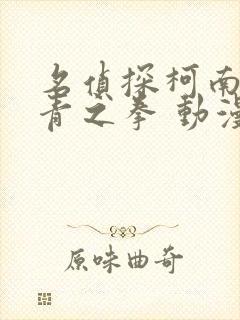 名偵探柯南
青之拳 動漫
原味曲奇